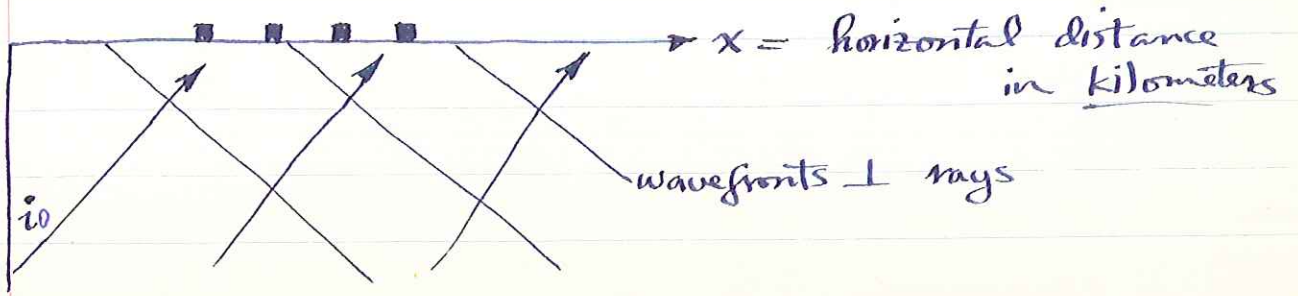 x = horizontal distance
in kilometers
wavefronts ⊥ rays
i₀